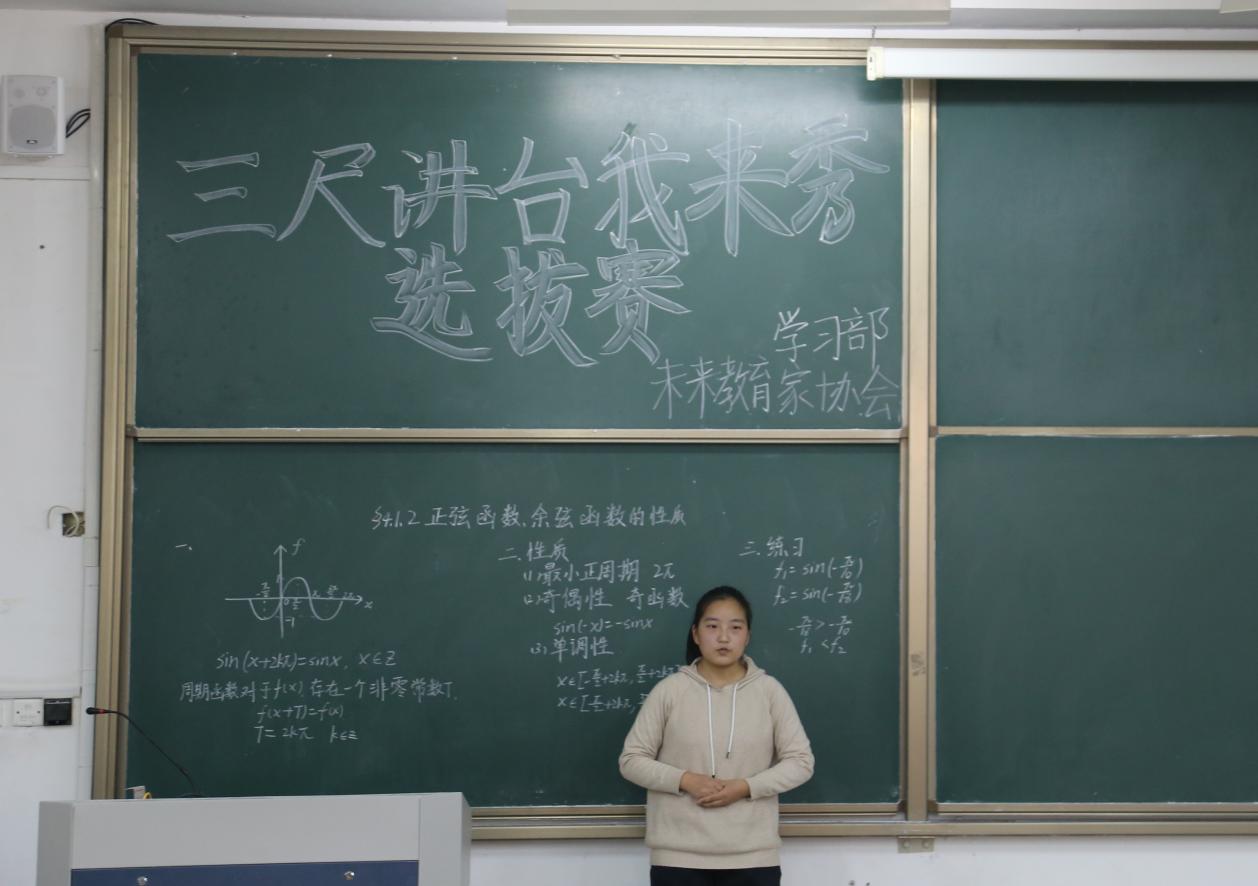 三尺讲台我来秀
选拔赛
学习部
未来教育家协会
§4.1.2 正弦函数、余弦函数的性质
一、
f
x
-1
sin(x+2kπ)=sinx, x∈Z
周期函数对于f(x) 存在一个非零常数T.
f(x+T)=f(x)
T=2kπ k∈Z
二.性质
(1)最小正周期 2π
(2)奇偶性 奇函数
sin(-x)=-sinx
(3)单调性
x∈[-π/2+2kπ, π/2+2kπ]
x∈[-π/2+2kπ,
三.练习
f₁=sin(-π/18)
f₂=sin(-π/10)
-π/18>-π/10
f₁<f₂